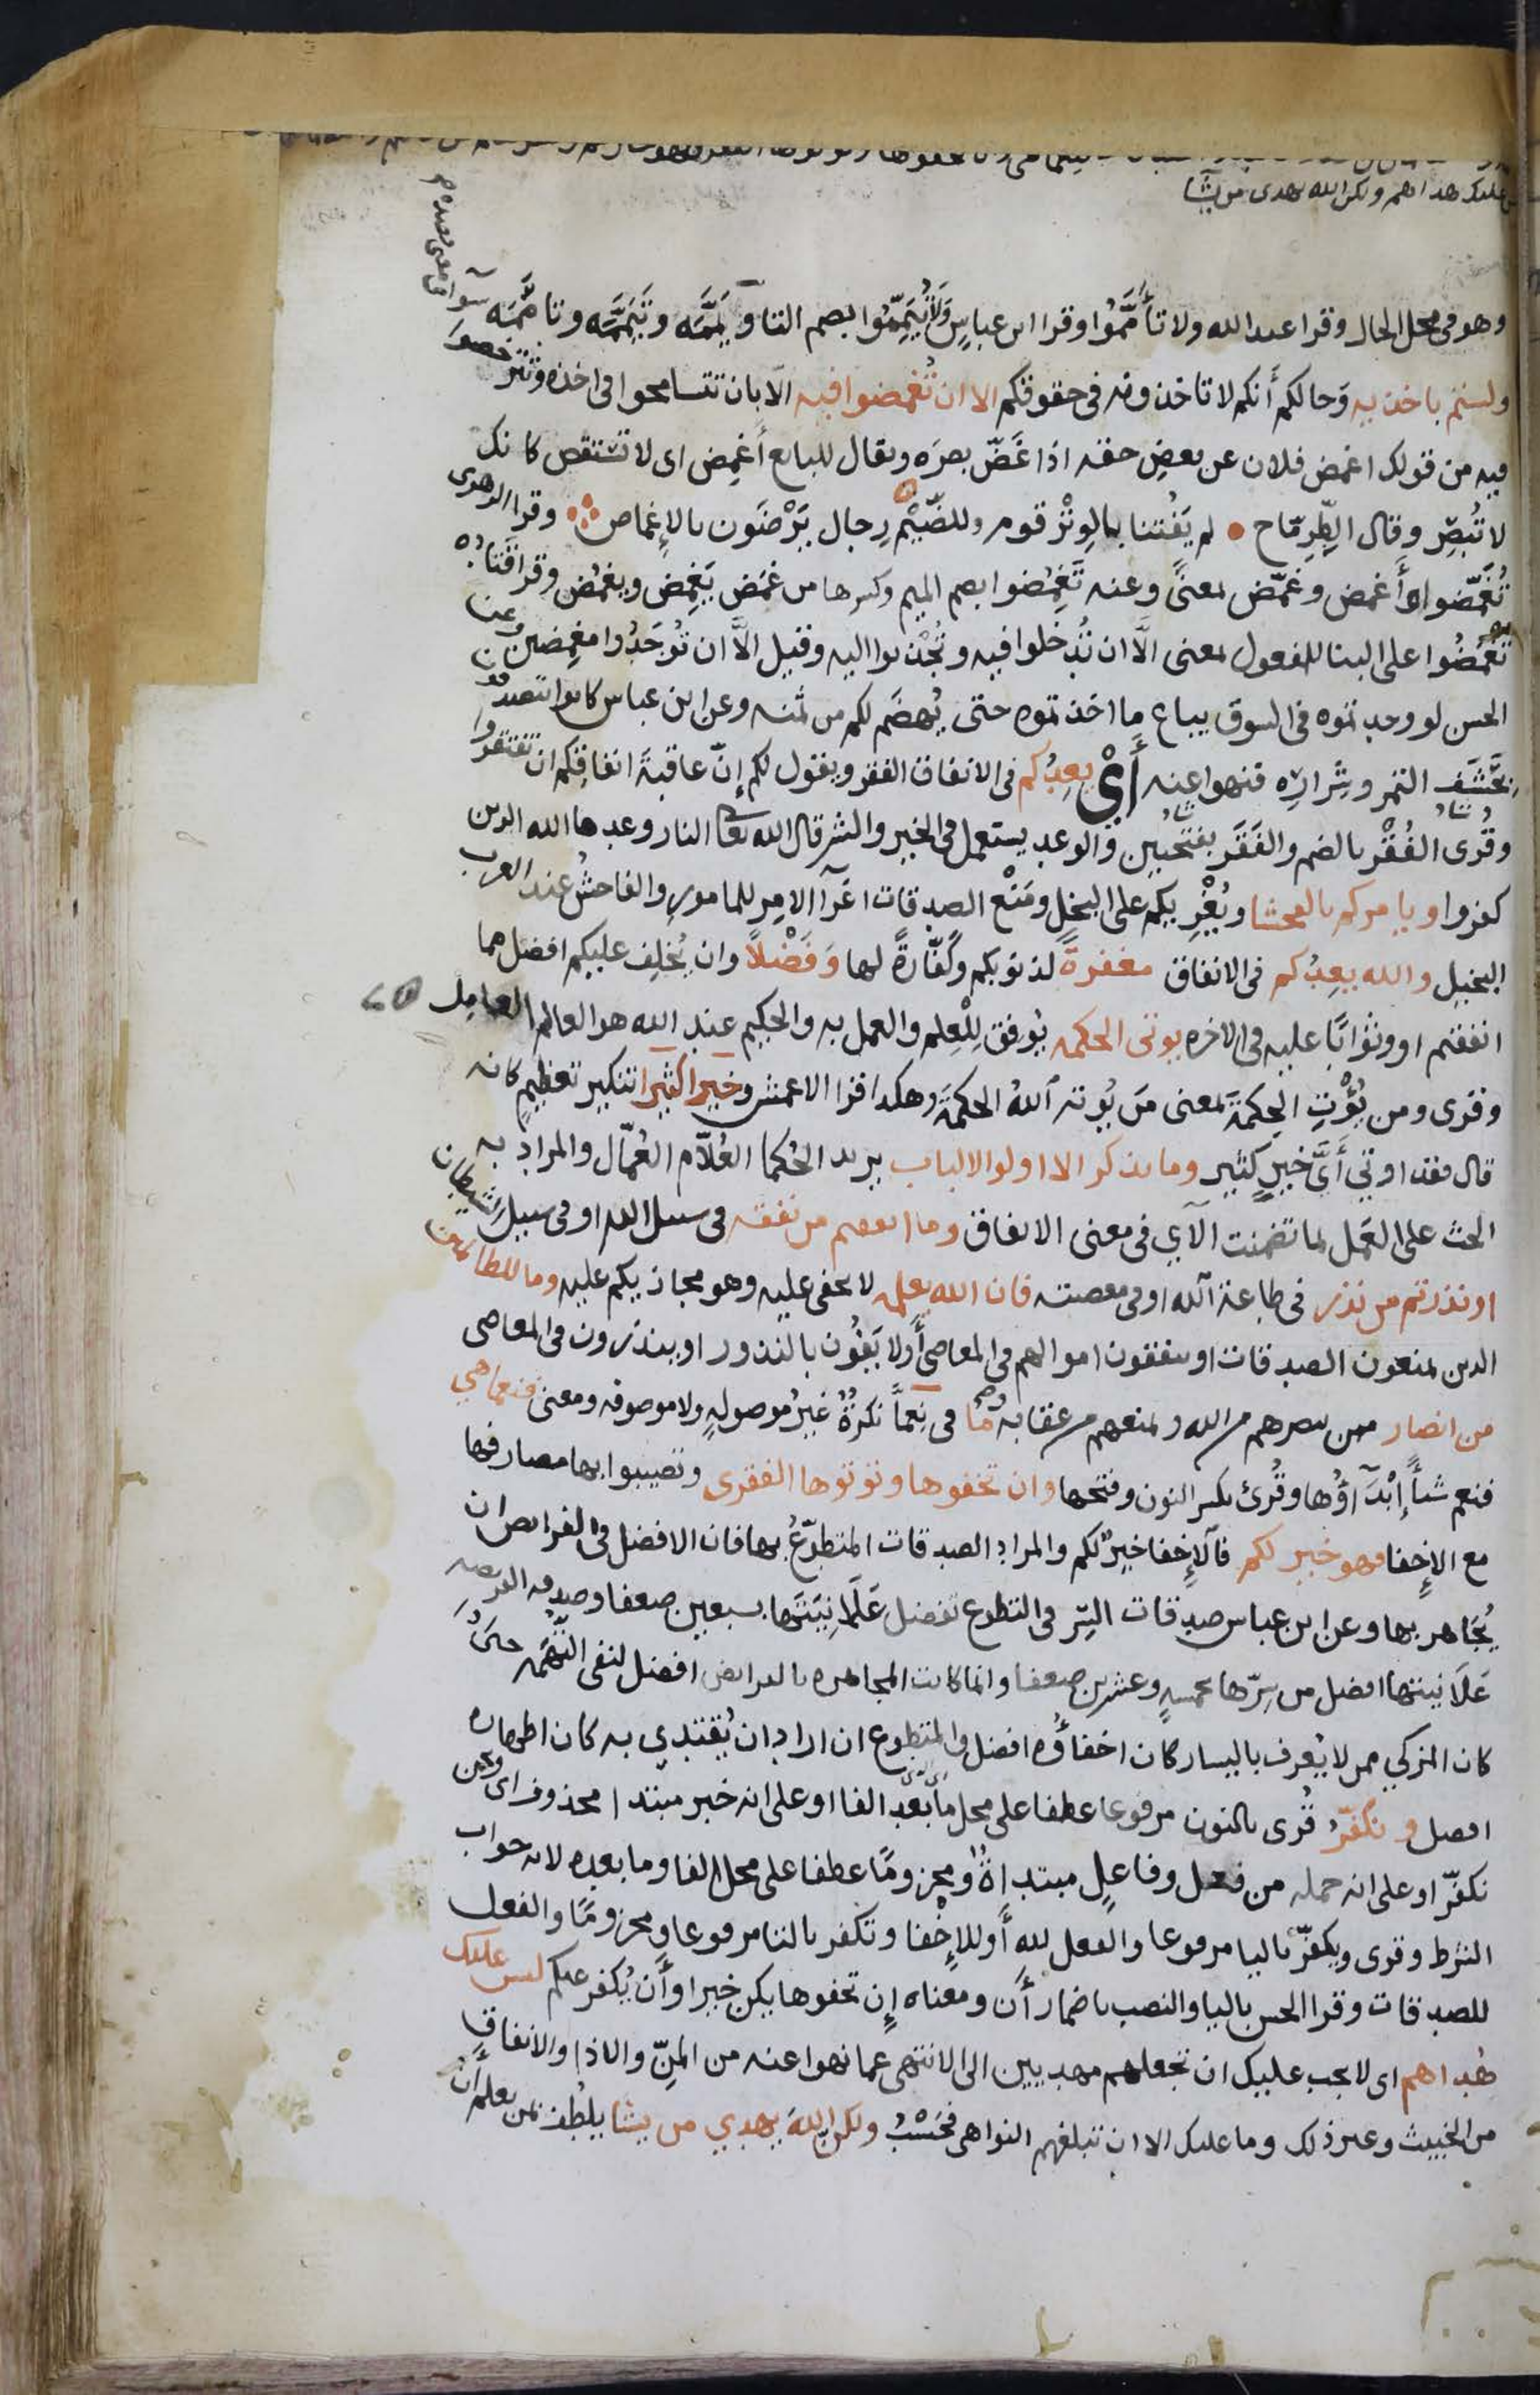 عليك هداهم ولكن الله يهدى من يشا
وهو فى محل الحال وقرا عبد الله ولا تأمَّمُوا وقرا ابن عباسٍ وَلَا تُيَمِّمُوا بضم التا و يَمَّمَه وتَيَمَّمَه وتأمَّمَه سوآ فى معنى قصده
ولستم باخذيه وَحالكم أنكم لا تاخذونه فى حقوقكم الا ان تُغمضوا فيه الّا بان تتسامحوا فى اخذه وتترخصوا
فيه من قولك اغمض فلان عن بعضِ حقه اذا غَضّ بصرَه ويقال للبايع أغمِض اى لا تستقص كانك
لا تُبصِر وقال الطِّرِمّاح • لم يَفُتنا بالوِتْرِ قوم وللضَّيْمِ رِجال يَرْضَون بالإِغماض وقرا الزهرى
تُغَمِّضوا وأَغمض وغمّض بمعنًى وعنه تَغمِضوا بضم الميم وكسرها من غمَض يَغمِض ويغمُض وقرا قتاده
تُغمَضُوا على البنا للمفعول بمعنى الَّا ان تُدخلوا فيه وتُجْذبوا اليه وقيل الَّا ان تُوجَدُوا مغمِضين وعن
الحسن لو وجدتموه فى السوق يباع ما اخذتموه حتى يُهضَم لكم من ثمنه وعن ابن عباس كانوا يتصدقون
بحَشَف التمر وشِرارِه فنهوا عنه أَىْ يعِدُكم فى الانفاق الفقر ويقول لكم إنّ عاقبةَ انفاقِكم ان تفتقروا
وقُرى الفُقْر بالضم والفَقَر بفتحتين والوعد يستعمل فى الخير والشر قال الله تعالى النار وعدها الله الذين
كفروا ويامركم بالفحشا ويُغْرِيكم على البخل ومَنْع الصدقات اغرآ الامِر للمامور والفاحشُ عند العرب
البخيل والله يعِدُكم فى الانفاق مغفرةً لذنوبكم وكفّارةً لها وَفَضْلاً وان يُخلِف عليكم افضل مما
انفقتم او وثوابًا عليه فى الاخره يوتى الحكمه يُوفق لِلْعِلم والعمل به والحكيم عند الله هو العالم العامل
وقرى ومن يُؤْتِ الحِكمَةَ بمعنى مَن يُوته ٱللهُ الحكمةَ وهكذا قرا الاعمش وخيرا كثيرا تنكير تعظيمٍ كانه
قال فقد اوتى أَيَّ خيرٍ كثيرٍ وما يذكر الا اولوا الالباب يريد الحُكما العُلّام العُمّال والمراد به
الحث على العَمل بما تضمنت الآي فى معنى الانفاق وما انفقتم من نفقه فى سبيل الله او فى سبيلِ الشيطان
او نذرتم من نذر فى طاعة الله او فى معصيته فان الله يعلمه لا يخفى عليه وهو مجازيكم عليه وما للظالمين
الذين يمنعون الصدقات او ينفقون اموالهم فى المعاصى أَولا يَفُون بالنذور او ينذرون فى المعاصى
من انصار ممن ينصرهم من الله ويمنعهم من عقابه ما فى نِعِمَّا نكرةٌ غيرُ موصولهٍ ولا موصوفه ومعنى فنعما هي
فنعم شيأً إِبْدَآؤُها وقُرئ بكسر النون وفتحها وان تخفوها وتوتوها الفقرى وتصيبوا بها مصارفها
مع الإِخفا فهو خير لكم فآلإِخفا خيرٌ لكم والمراد الصدقات المتطوَّعُ بها فان الافضل فى الفرايص ان
يُجَاهر بها وعن ابن عباس صدقات السِّر فى التطوع تفضل عَلَانِيَتَها سبعين ضعفا وصدقه الفريضه
عَلَانيتها افضل من سِرّها بخمسهٍ وعشرين ضعفا وانما كانت المجاهره بالفرايض افضل لنفى التُّهمَه حتى
كان المزكي ممن لا يُعرف باليسار كان اخفاؤُه افضل والمتطوع ان اراد ان يُقتدي به كان اظهاره
افضل و نكفّرُ قُرى بالنون مرفوعا عطفا على محل ما بعد الفا او على انه خبر مبتدا محذوف اى ونحن
نكفّر او على انه جمله من فعل وفاعلٍ مبتداةٌ ومجزومًا عطفا على محل الفا وما بعده لانه جواب
الشرط وقرى ويكفّر باليا مرفوعا والفعل لله أَو للإِخْفا وتكفر بالتا مرفوعا ومجزومًا والفعل
للصدقات وقرا الحسن باليا والنصب باضمار أَن ومعناه إِن تخفوها يكن خيرا وأَن يُكفر عنكم ليس عليك
هُداهم اى لا يجب عليك ان تجعلهم مهديين الى الانتهى عما نهوا عنه من المنّ والاذا والانفاقِ
من الخبيث وغير ذلك وما عليك الا ان تبلغهم النواهى فحَسْبُ ولكنّ اللهَ يهدي من يشا يلطُف بمن يعلم أن